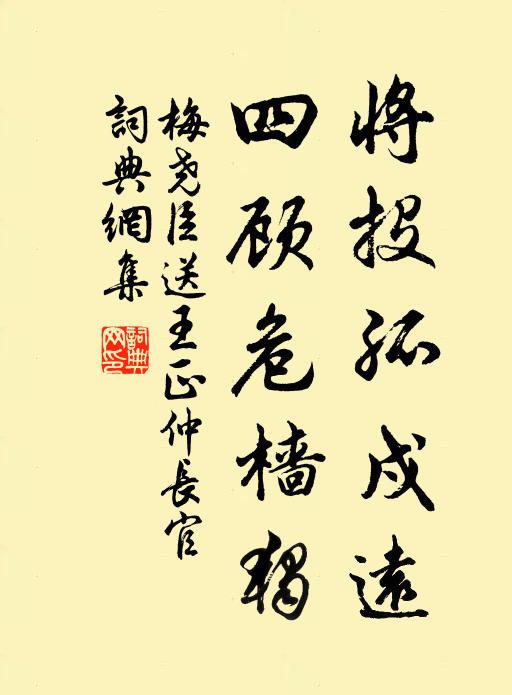 将投孤戍遠
四顾危樯獨
梅尧臣送王正仲長官
詞典網集
詞典網印